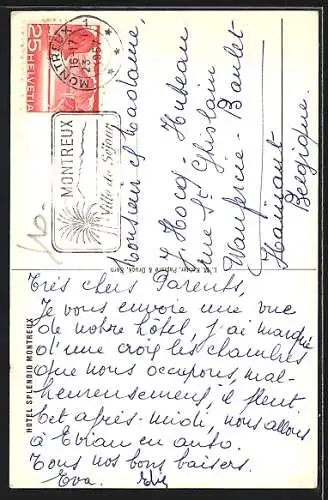 25
HELVETIA
MONTREUX 1
16-17
23
MONTREUX
Ville de Séjour
Monsieur et Madame,
J. Hocq - Hubeau
rue St Ghislain
Hainaut
Belgique.
HOTEL SPLENDID MONTREUX
Très chers Parents,
Je vous envoie une vue
de notre hôtel, j'ai marqué
d'une croix les chambres
que nous occupons, mal-
heureusement, il pleut
Cet après-midi, nous allons
à Evian en auto.
Tous nos bons baisers.
Eva.